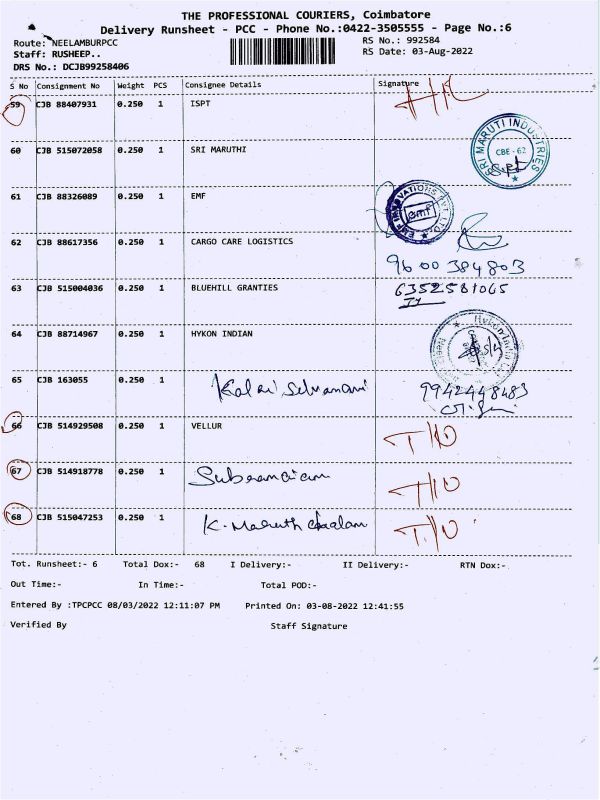 THE PROFESSIONAL COURIERS, Coimbatore
Delivery Runsheet - PCC - Phone No.:0422-3505555 - Page No.:6
Route: NEELAMBURPCC RS No.: 992584
Staff: RUSHEEP.. RS Date: 03-Aug-2022
DRS No.: DCJB99258406
S No Consignment No Weight PCS Consignee Details Signature
59 CJB 88407931 0.250 1 ISPT
60 CJB 515072058 0.250 1 SRI MARUTHI
SRI MARUTI INDUSTRIES
CBE - 62
61 CJB 88326089 0.250 1 EMF
EMF INNOVATIONS PVT. LTD.
emf
62 CJB 88617356 0.250 1 CARGO CARE LOGISTICS
9600384803
63 CJB 515004036 0.250 1 BLUEHILL GRANTIES 6352581065
64 CJB 88714967 0.250 1 HYKON INDIAN
Hykon India
65 CJB 163055 0.250 1 Kalai Selvamani 9942448483
66 CJB 514929508 0.250 1 VELLUR T/10
67 CJB 514918778 0.250 1 T/10
68 CJB 515047253 0.250 1 T/10
Tot. Runsheet:- 6 Total Dox:- 68 I Delivery:- II Delivery:- RTN Dox:-
Out Time:- In Time:- Total POD:-
Entered By :TPCPCC 08/03/2022 12:11:07 PM Printed On: 03-08-2022 12:41:55
Verified By Staff Signature